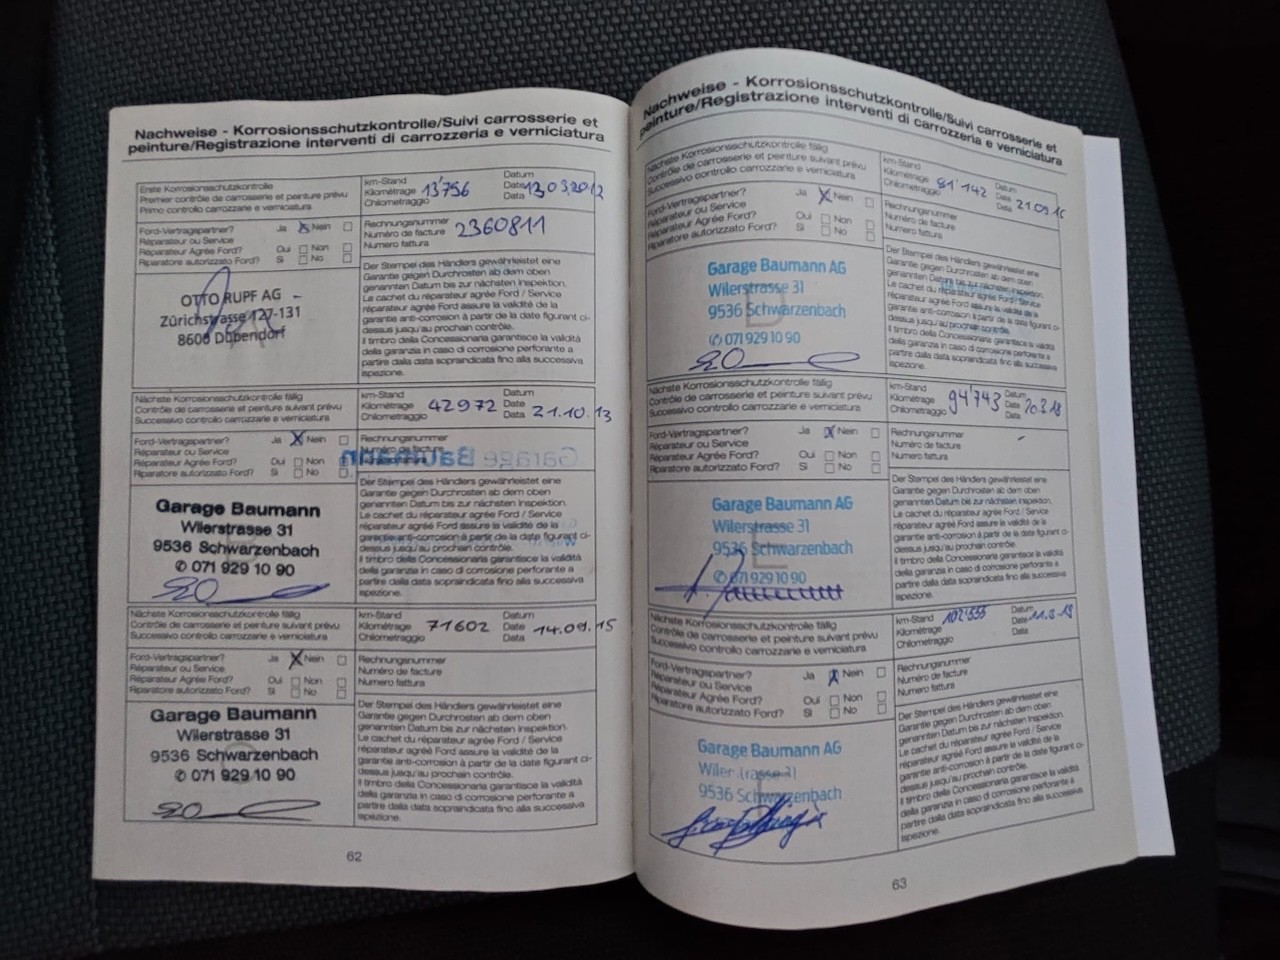 Nachweise - Korrosionsschutzkontrolle/Suivi carrosserie et
peinture/Registrazione interventi di carrozzeria e verniciatura
Erste Korrosionsschutzkontrolle
Premier contrôle de carrosserie et peinture prévu
Primo controllo carrozzerie e verniciatura
km-Stand
Kilométrage 13'756
Chilometraggio
Datum
Date 13.03.2012
Data
Ford-Vertragspartner? Ja X Nein
Réparateur ou Service
Réparateur Agrée Ford? Oui Non
Riparatore autorizzato Ford? Si No
Rechnungsnummer
Numéro de facture 2360811
Numero fattura
OTTO RUPF AG
Zürichstrasse 127-131
8600 Dübendorf
Der Stempel des Händlers gewährleistet eine
Garantie gegen Durchrosten ab dem oben
genannten Datum bis zur nächsten Inspektion.
Le cachet du réparateur agrée Ford / Service
réparateur agréé Ford assure la validité de la
garantie anti-corrosion à partir de la date figurant ci-
dessus jusqu'au prochain contrôle.
Il timbro della Concessionaria garantisce la validità
della garanzia in caso di corrosione perforante a
partire dalla data sopraindicata fino alla successiva
ispezione.
Nächste Korrosionsschutzkontrolle fällig
Contrôle de carrosserie et peinture suivant prévu
Successivo controllo carrozzerie e verniciatura
km-Stand
Kilométrage 42972
Chilometraggio
Datum
Date 21.10.13
Data
Ford-Vertragspartner? Ja X Nein
Réparateur ou Service
Réparateur Agrée Ford? Oui Non
Riparatore autorizzato Ford? Si No
Rechnungsnummer
Numero fattura
Garage Baumann
Garage Baumann
Wilerstrasse 31
9536 Schwarzenbach
✆ 071 929 10 90
Der Stempel des Händlers gewährleistet eine
Garantie gegen Durchrosten ab dem oben
genannten Datum bis zur nächsten Inspektion.
Le cachet du réparateur agrée Ford / Service
réparateur agréé Ford assure la validité de la
garantie anti-corrosion à partir de la date figurant ci-
dessus jusqu'au prochain contrôle.
Il timbro della Concessionaria garantisce la validità
della garanzia in caso di corrosione perforante a
partire dalla data sopraindicata fino alla successiva
ispezione.
Nächste Korrosionsschutzkontrolle fällig
Contrôle de carrosserie et peinture suivant prévu
Successivo controllo carrozzerie e verniciatura
km-Stand
Kilométrage 71602
Chilometraggio
Datum
Date 14.09.15
Data
Ford-Vertragspartner? Ja X Nein
Réparateur ou Service
Réparateur Agrée Ford? Oui Non
Riparatore autorizzato Ford? Si No
Rechnungsnummer
Numéro de facture
Numero fattura
Garage Baumann
Wilerstrasse 31
9536 Schwarzenbach
✆ 071 929 10 90
Der Stempel des Händlers gewährleistet eine
Garantie gegen Durchrosten ab dem oben
genannten Datum bis zur nächsten Inspektion.
Le cachet du réparateur agrée Ford / Service
réparateur agréé Ford assure la validité de la
garantie anti-corrosion à partir de la date figurant ci-
dessus jusqu'au prochain contrôle.
Il timbro della Concessionaria garantisce la validità
della garanzia in caso di corrosione perforante a
partire dalla data sopraindicata fino alla successiva
ispezione.
62
Nachweise - Korrosionsschutzkontrolle/Suivi carrosserie et
peinture/Registrazione interventi di carrozzeria e verniciatura
Nächste Korrosionsschutzkontrolle fällig
Contrôle de carrosserie et peinture suivant prévu
Successivo controllo carrozzerie e verniciatura
km-Stand
Kilométrage 81'142
Chilometraggio
Datum
Date 21.09.16
Data
Ford-Vertragspartner? Ja X Nein
Réparateur ou Service
Réparateur Agrée Ford? Oui Non
Riparatore autorizzato Ford? Si No
Rechnungsnummer
Numéro de facture
Numero fattura
Garage Baumann AG
Wilerstrasse 31
9536 Schwarzenbach
✆ 071 929 10 90
Der Stempel des Händlers gewährleistet eine
Garantie gegen Durchrosten ab dem oben
genannten Datum bis zur nächsten Inspektion.
Le cachet du réparateur agrée Ford / Service
réparateur agréé Ford assure la validité de la
garantie anti-corrosion à partir de la date figurant ci-
dessus jusqu'au prochain contrôle.
Il timbro della Concessionaria garantisce la validità
della garanzia in caso di corrosione perforante a
partire dalla data sopraindicata fino alla successiva
ispezione.
Nächste Korrosionsschutzkontrolle fällig
Contrôle de carrosserie et peinture suivant prévu
Successivo controllo carrozzerie e verniciatura
km-Stand
Kilométrage 94'743
Chilometraggio
Datum
Date 20.3.18
Data
Ford-Vertragspartner? Ja X Nein
Réparateur ou Service
Réparateur Agrée Ford? Oui Non
Riparatore autorizzato Ford? Si No
Rechnungsnummer
Numéro de facture
Numero fattura
Garage Baumann AG
Wilerstrasse 31
9536 Schwarzenbach
✆ 071 929 10 90
Der Stempel des Händlers gewährleistet eine
Garantie gegen Durchrosten ab dem oben
genannten Datum bis zur nächsten Inspektion.
Le cachet du réparateur agrée Ford / Service
réparateur agréé Ford assure la validité de la
garantie anti-corrosion à partir de la date figurant ci-
dessus jusqu'au prochain contrôle.
Il timbro della Concessionaria garantisce la validità
della garanzia in caso di corrosione perforante a
partire dalla data sopraindicata fino alla successiva
ispezione.
Nächste Korrosionsschutzkontrolle fällig
Contrôle de carrosserie et peinture suivant prévu
Successivo controllo carrozzerie e verniciatura
km-Stand
Kilométrage 102'555
Chilometraggio
Datum
Date
Data
Ford-Vertragspartner? Ja X Nein
Réparateur ou Service
Réparateur Agrée Ford? Oui Non
Riparatore autorizzato Ford? Si No
Rechnungsnummer
Numéro de facture
Numero fattura
Garage Baumann AG
9536 Schwarzenbach
Der Stempel des Händlers gewährleistet eine
Garantie gegen Durchrosten ab dem oben
genannten Datum bis zur nächsten Inspektion.
Le cachet du réparateur agrée Ford / Service
réparateur agréé Ford assure la validité de la
garantie anti-corrosion à partir de la date figurant ci-
dessus jusqu'au prochain contrôle.
Il timbro della Concessionaria garantisce la validità
della garanzia in caso di corrosione perforante a
partire dalla data sopraindicata fino alla successiva
ispezione.
63